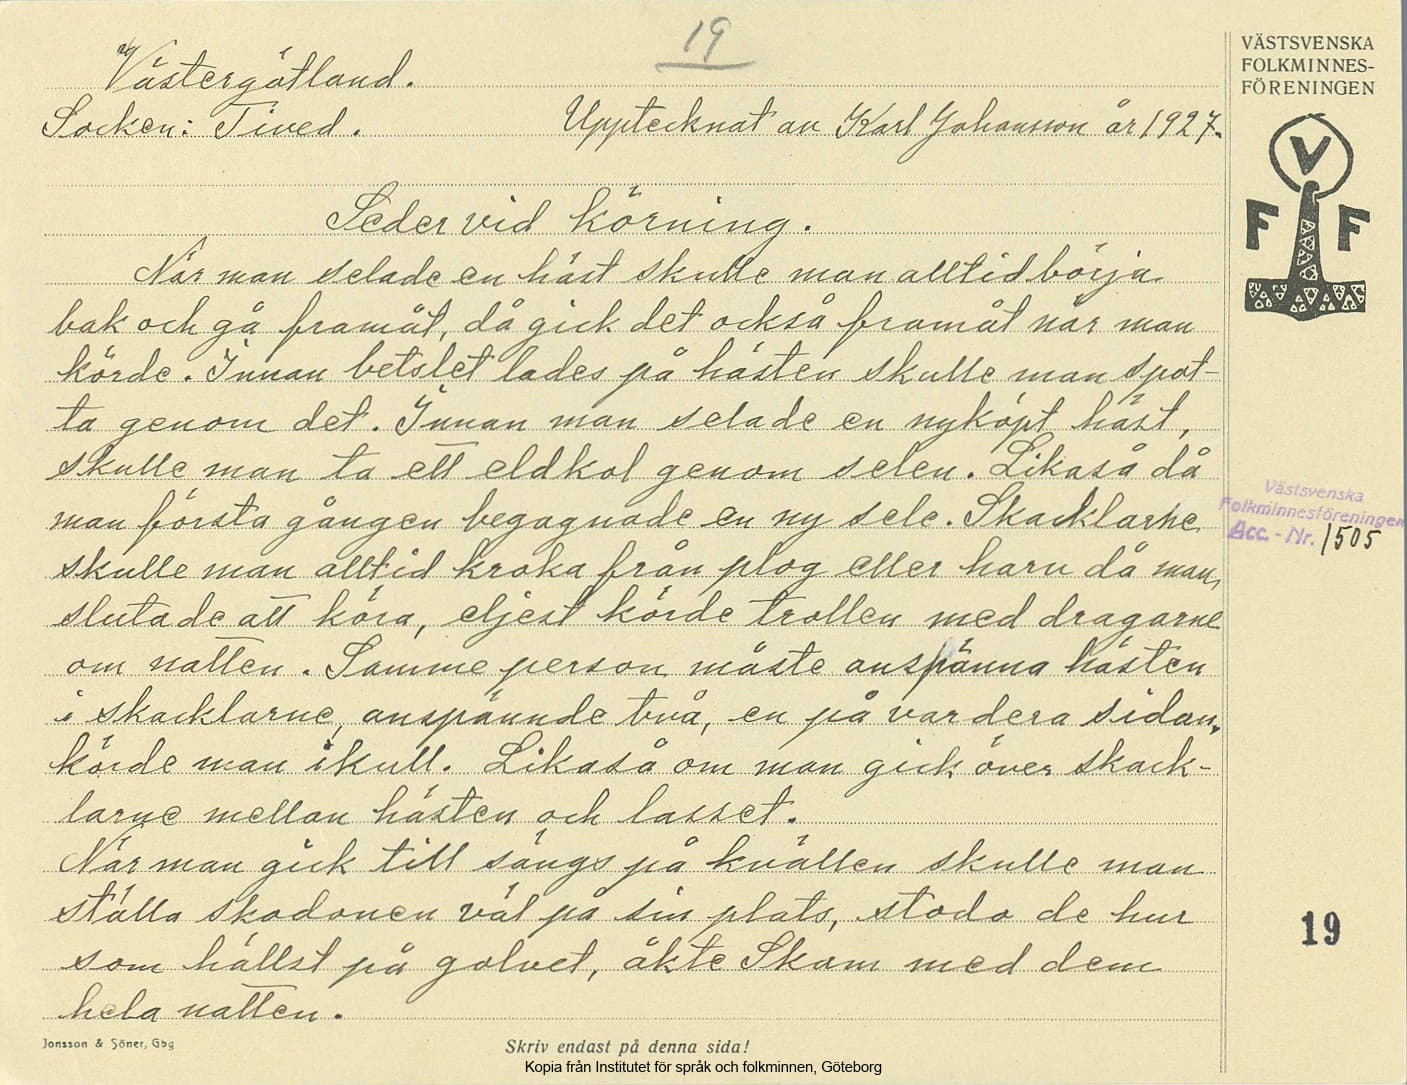 19
Västergötland.
Socken: Tived.
Upptecknat av Karl Johansson år 1927.
Seder vid körning.
När man selade en häst skulle man alltid börja
bak och gå framåt, då gick det också framåt när man
körde. Innan betslet lades på hästen skulle man spot-
ta genom det. Innan man selade en nyköpt häst,
skulle man ta ett eldkol genom selen. Likaså då
man första gången begagnade en ny sele. Skacklarne
skulle man alltid kroka från plog eller harv då man
slutade att köra, eljest körde trollen med dragarne
om natten. Samme person måste anspänna hästen
i skacklarne, anspännde två, en på vardera sidan,
körde man ikull. Likaså om man gick över skack-
larne mellan hästen och lasset.
När man gick till sängs på kvällen skulle man
ställa skodonen väl på sin plats, stodo de hur
som hällst på golvet, åkte Skam med dem
hela natten.
Jonsson & Söner, Gbg
Skriv endast på denna sida!
Kopia från Institutet för språk och folkminnen, Göteborg
VÄSTSVENSKA
FOLKMINNES-
FÖRENINGEN
V
F F
Västsvenska
Folkminnesföreningen
Acc. - Nr. 1505
19